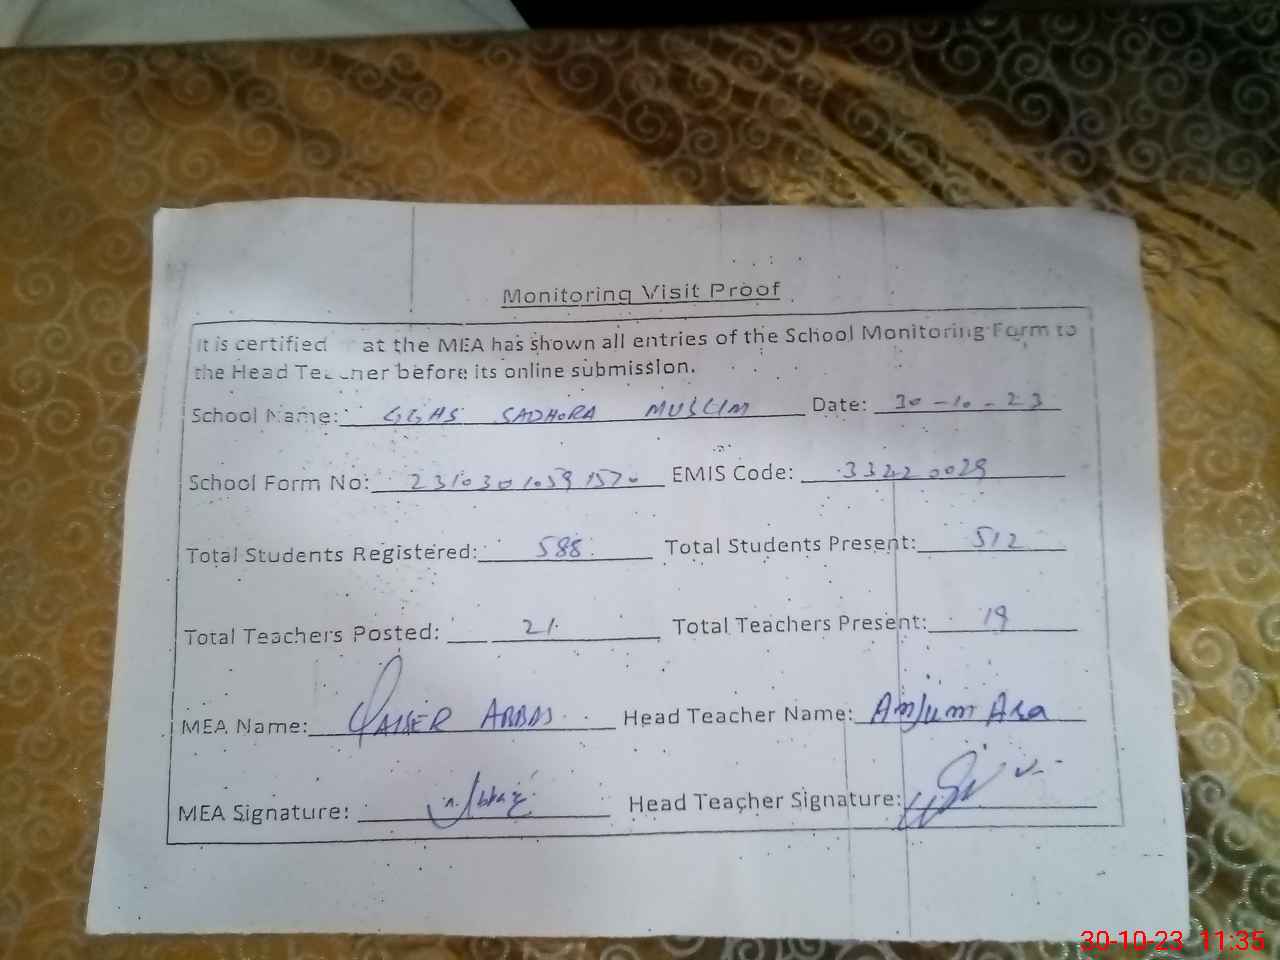 Monitoring Visit Proof
It is certified at the MEA has shown all entries of the School Monitoring Form to
the Head Teacher before its online submission.
School Name: GGHS SADHORA MUSLIM Date: 30-10-23
School Form No: 23103010591570 EMIS Code: 33220029
Total Students Registered: 588 Total Students Present: 512
Total Teachers Posted: 21 Total Teachers Present: 19
MEA Name: QAISER ABBAS Head Teacher Name: Anjum Ara
MEA Signature: Head Teacher Signature:
30-10-23 11:35